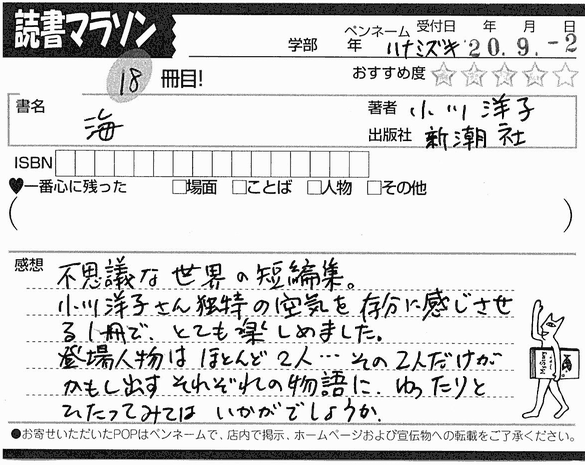 読書マラソン
学部 年 ペンネーム ハナミズキ 受付日 年 月 日 20.9.-2
18冊目!
おすすめ度 ☆☆☆☆☆
書名 海
著者 小川洋子
出版社 新潮社
ISBN
♥一番心に残った □場面 □ことば □人物 □その他
( )
感想 不思議な世界の短編集。
小川洋子さん独特の空気を存分に感じさせ
る1冊で、とても楽しめました。
登場人物はほとんど2人…その2人だけが
かもし出すそれぞれの物語に、ゆったりと
ひたってみてはいかがでしょうか。
●お寄せいただいたPOPはペンネームで、店内で掲示、ホームページおよび宣伝物への転載をご了承ください。